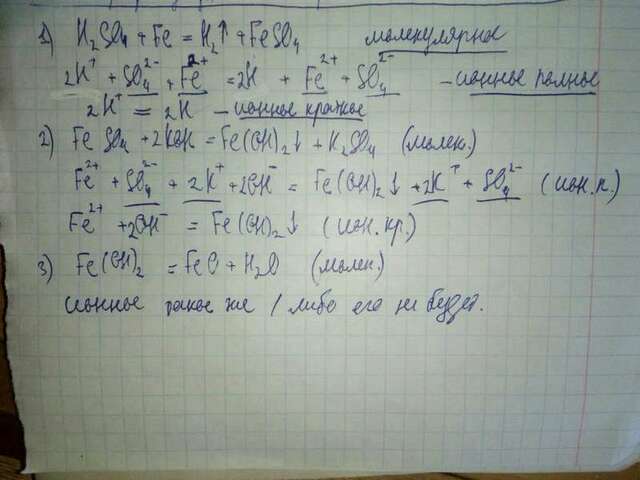 1) H₂SO₄ + Fe = H₂↑ + FeSO₄ молекулярное
2H⁺ + SO₄²⁻ + Fe²⁺ = 2H + Fe²⁺ + SO₄²⁻ – ионное полное
2H⁺ = 2H – ионное краткое
2) FeSO₄ + 2KOH = Fe(OH)₂↓ + H₂SO₄ (молек.)
Fe²⁺ + SO₄²⁻ + 2K⁺ + 2OH⁻ = Fe(OH)₂↓ + 2K⁺ + SO₄²⁻ (ион. п.)
Fe²⁺ + 2OH⁻ = Fe(OH)₂↓ (ион. кр.)
3) Fe(OH)₂ = FeO + H₂O (молек.)
ионное такое же / либо его не будет.